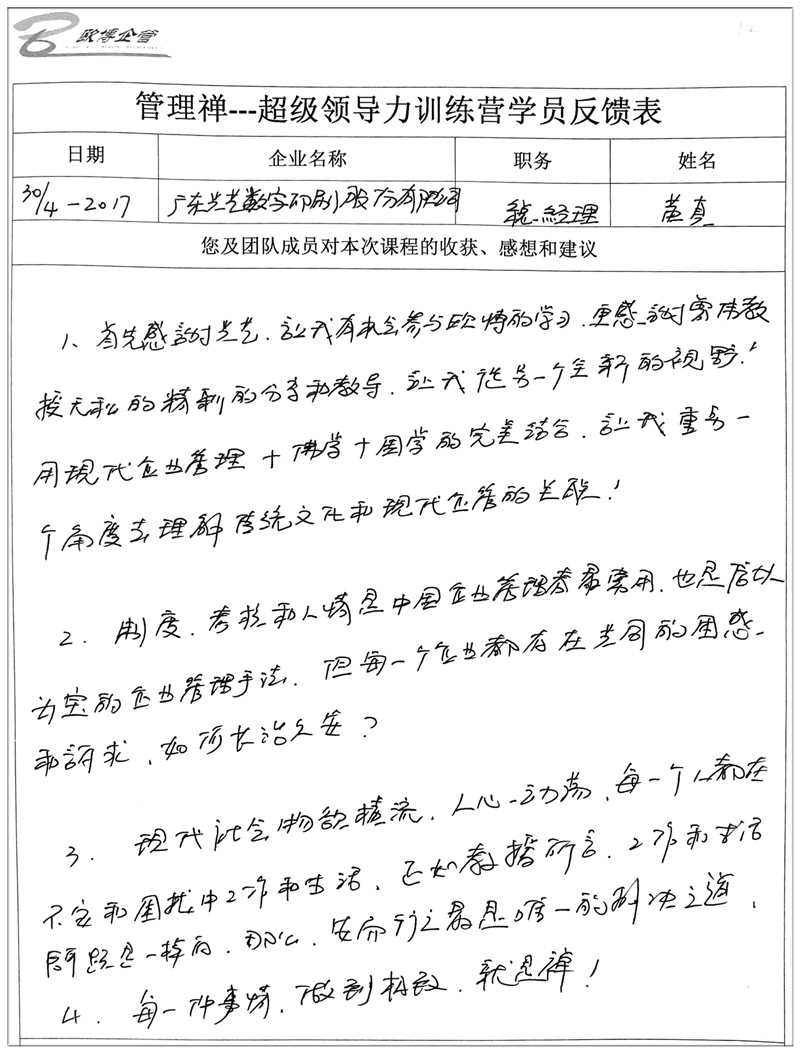 欧博企管
管理禅---超级领导力训练营学员反馈表
日期 企业名称 职务 姓名
30/4-2017 广东先艺数字印刷股份有限公司 總經理 黄真
您及团队成员对本次课程的收获、感想和建议
1、首先感谢先艺、让我有机会参与欧博的学习、更感谢教
授无私的精彩的分享和教导、让我从另一个全新的视野!
用現代企业管理+佛学+国学的完美结合、让我重另一
个角度去理解传统文化和現代企管的关联!
2. 制度、考核和人情是中国企业管理者最常用、也是信以
为宝的企业管理手法、但每一个企业都存在共同的困惑
和訴求、如何长治久安?
3. 現代社会物欲橫流、人心动荡、每一个人都在
不安和困扰中工作和生活、正如教授所言、工作和生活
問题是一样的、那么、安而行之最是唯一的解决之道、
4. 每一件事情、做到极致、就是禅!